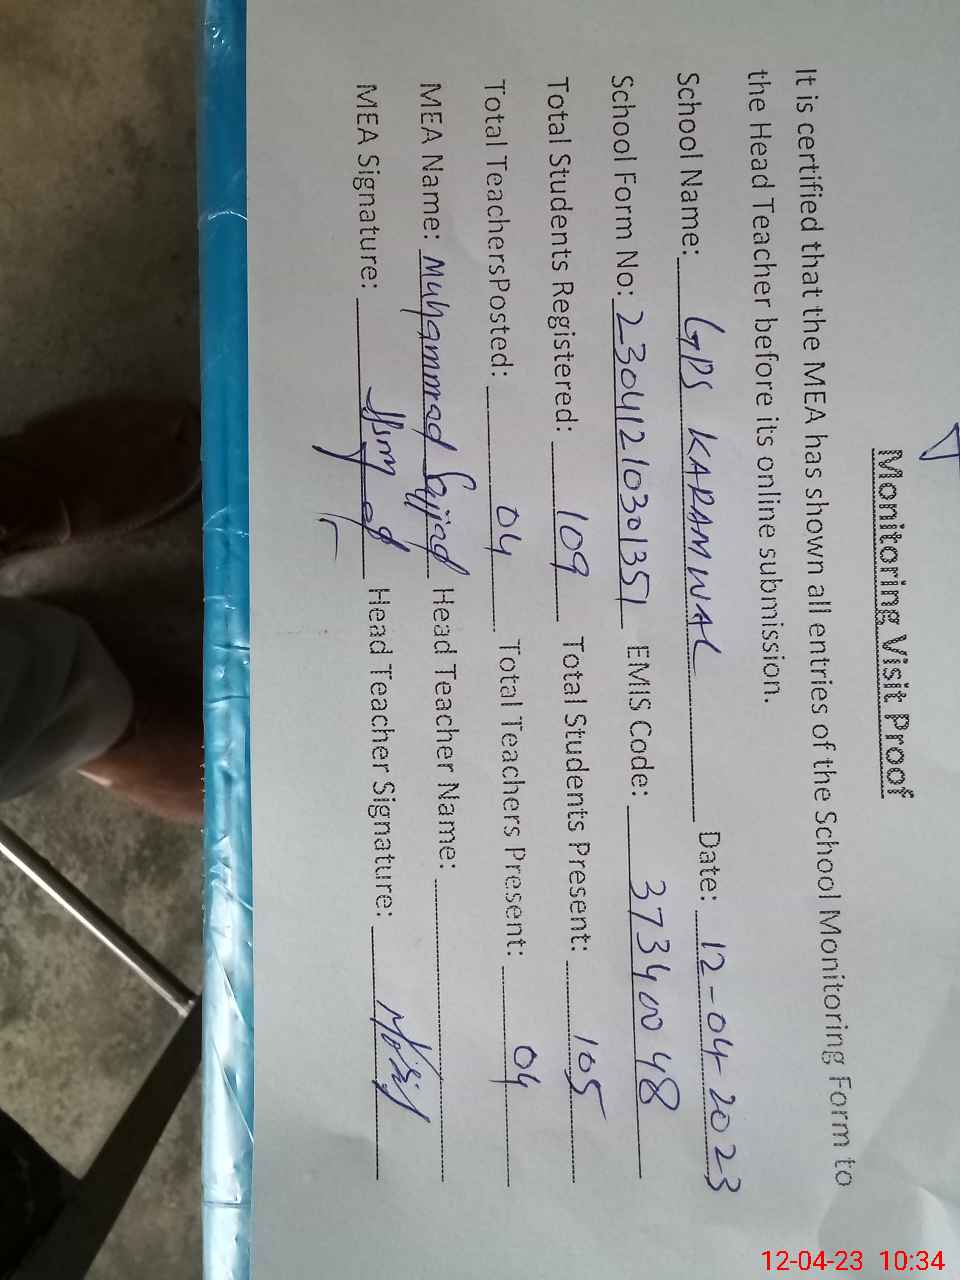 Monitoring Visit Proof
It is certified that the MEA has shown all entries of the School Monitoring Form to
the Head Teacher before its online submission.
School Name: GPS KARAMWAL Date: 12-04-2023
School Form No: 23041210301351 EMIS Code: 37340048
Total Students Registered: 109 Total Students Present: 105
Total TeachersPosted: 04 Total Teachers Present: 04
MEA Name: Muhammad Sajjad Head Teacher Name:
MEA Signature: Head Teacher Signature:
12-04-23 10:34